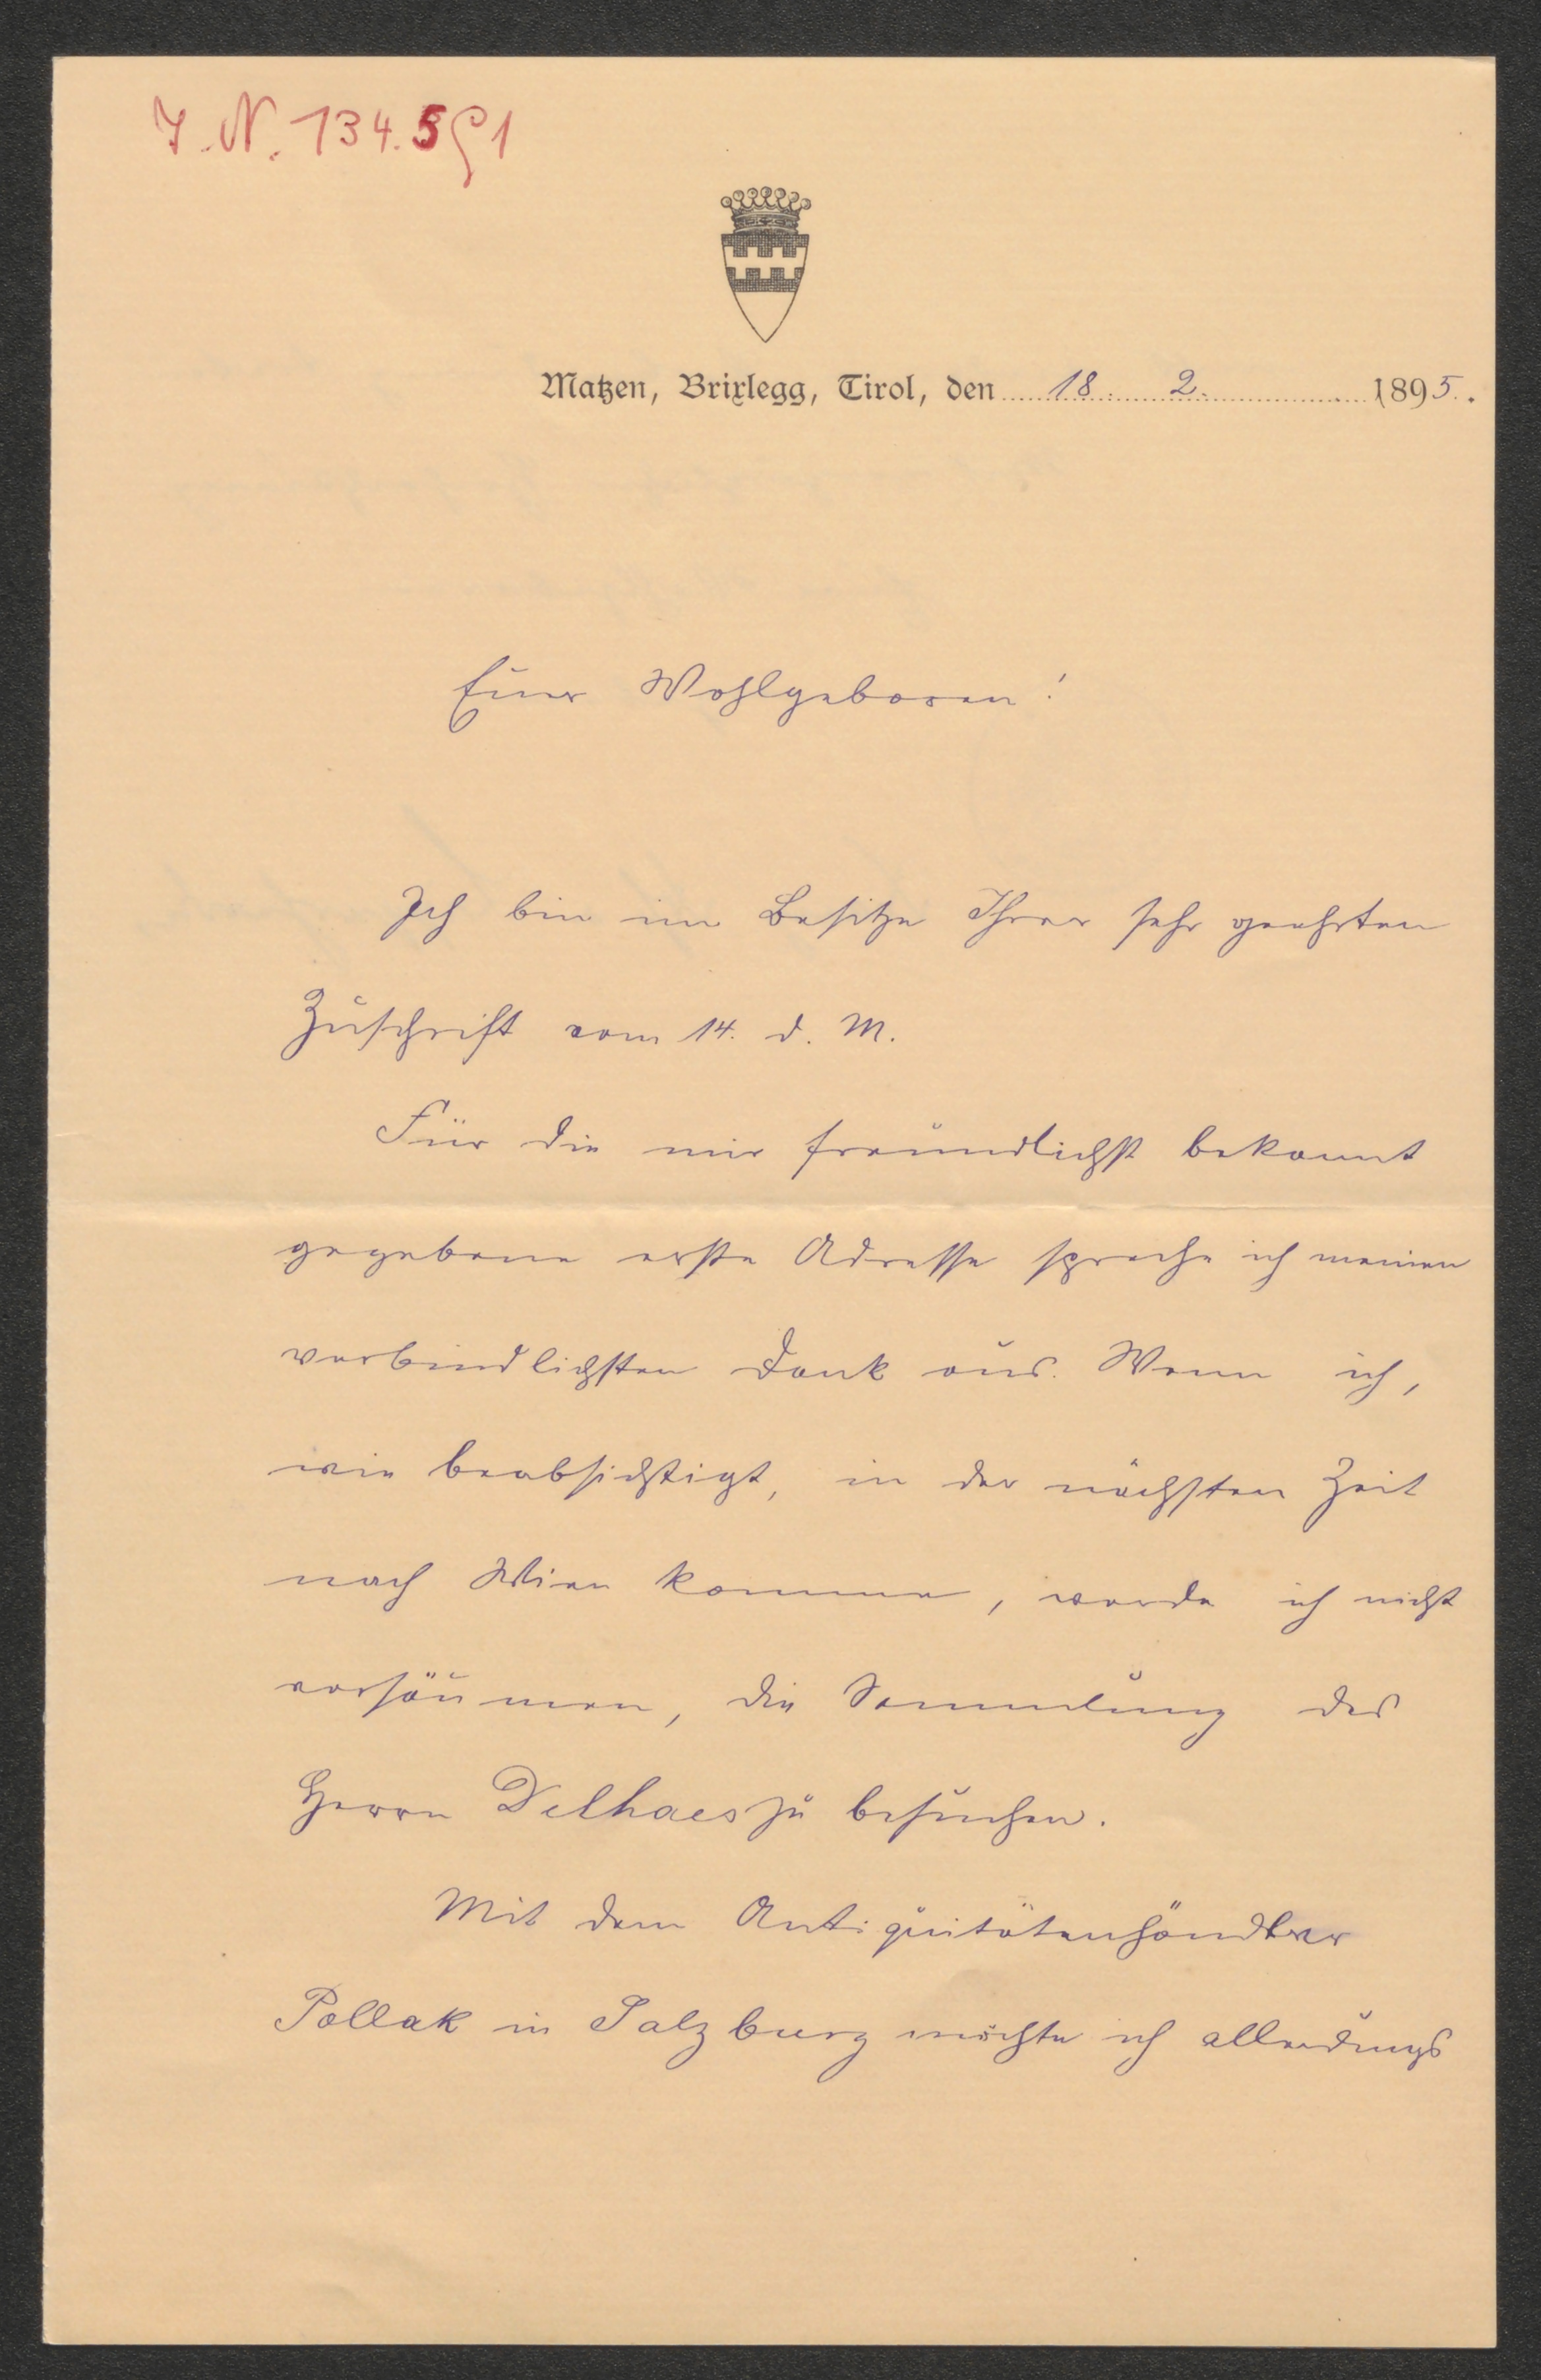 J. N. 134.591
Matzen, Brixlegg, Tirol, den 18. 2. 1895.
Euer Wohlgeboren!
Ich bin im Besitze Ihrer sehr geehrten
Zuschrift vom 14. d. M.
Für die mir freundlichst bekannt
gegebene erste Adresse spreche ich meinen
verbindlichsten Dank aus. Wenn ich,
wie beabsichtigt, in der nächsten Zeit
nach Wien komme, werde ich nicht
versäumen, die Sammlung des
Herrn Delhaes zu besuchen.
Mit dem Antiquitätenhändler
Pollak in Salzburg möchte ich allerdings